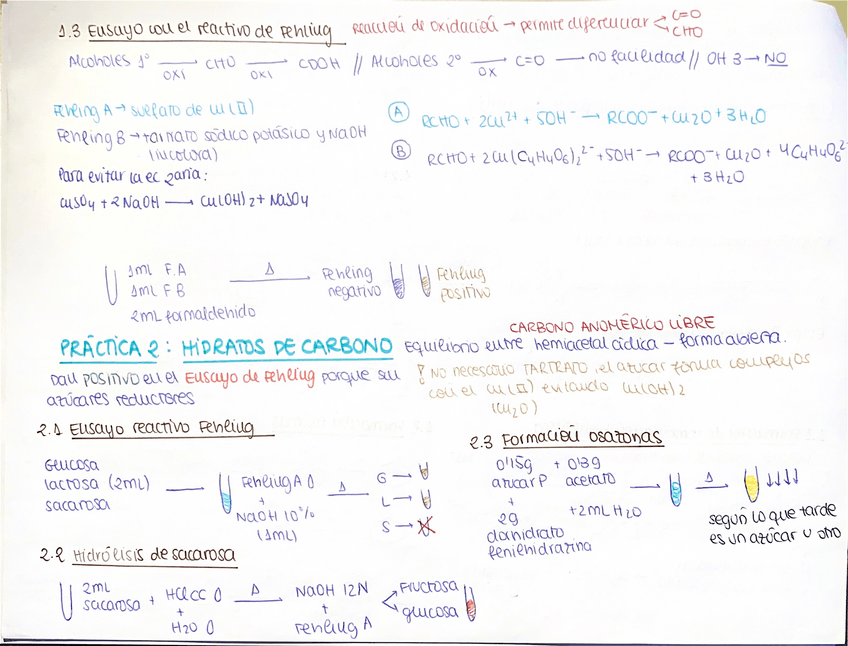 1.3 Ensayo con el reactivo de Fehling Reacción de oxidación → permite diferenciar < C=O
CHO
Alcoholes 1º → OXI CHO → OXI COOH // Alcoholes 2º → OX C=O — no facilidad // OH 3 → NO
Fehling A → sulfato de Cu(II)
Fehling B → tartrato sódico potásico y NaOH
(incolora)
Para evitar la ec 2aria:
CuSO4 + 2NaOH → Cu(OH)2 + NaSO4
A RCHO + 2Cu2+ + 5OH- → RCOO- + Cu2O + 3H2O
B RCHO + 2Cu(C4H4O6)2 2- + 5OH- → RCOO- + Cu2O + 4C4H4O6 2-
+ 3H2O
1ml F.A
1ml F B
2ml formaldehido
Δ →
Fehling
negativo
Fehling
positivo
CARBONO ANOMÉRICO LIBRE
PRÁCTICA 2: HIDRATOS DE CARBONO Equilibrio entre hemiacetal cíclica – forma abierta.
Dan POSITIVO en el Ensayo de Fehling porque son
azúcares reductores
! NO necesario TARTRATO, el azúcar forma complejos
con el Cu(II) evitando Cu(OH)2
(Cu2O)
2.1 Ensayo reactivo Fehling
Glucosa
lactosa (2ml)
sacarosa
Fehling A
+
NaOH 10%
(1ml)
Δ →
G →
L →
S →
2.2 Hidrólisis de sacarosa
2ml
sacarosa + HCl CC
+
H2O
Δ →
NaOH 12N
+
Fehling A
< Fructosa
glucosa
2.3 Formación osazonas
0'15g + 0'39
azúcar P acetato
+
2g +2ml H2O
clorhidrato
fenilhidrazina
Δ →
según lo que tarde
es un azúcar u otro